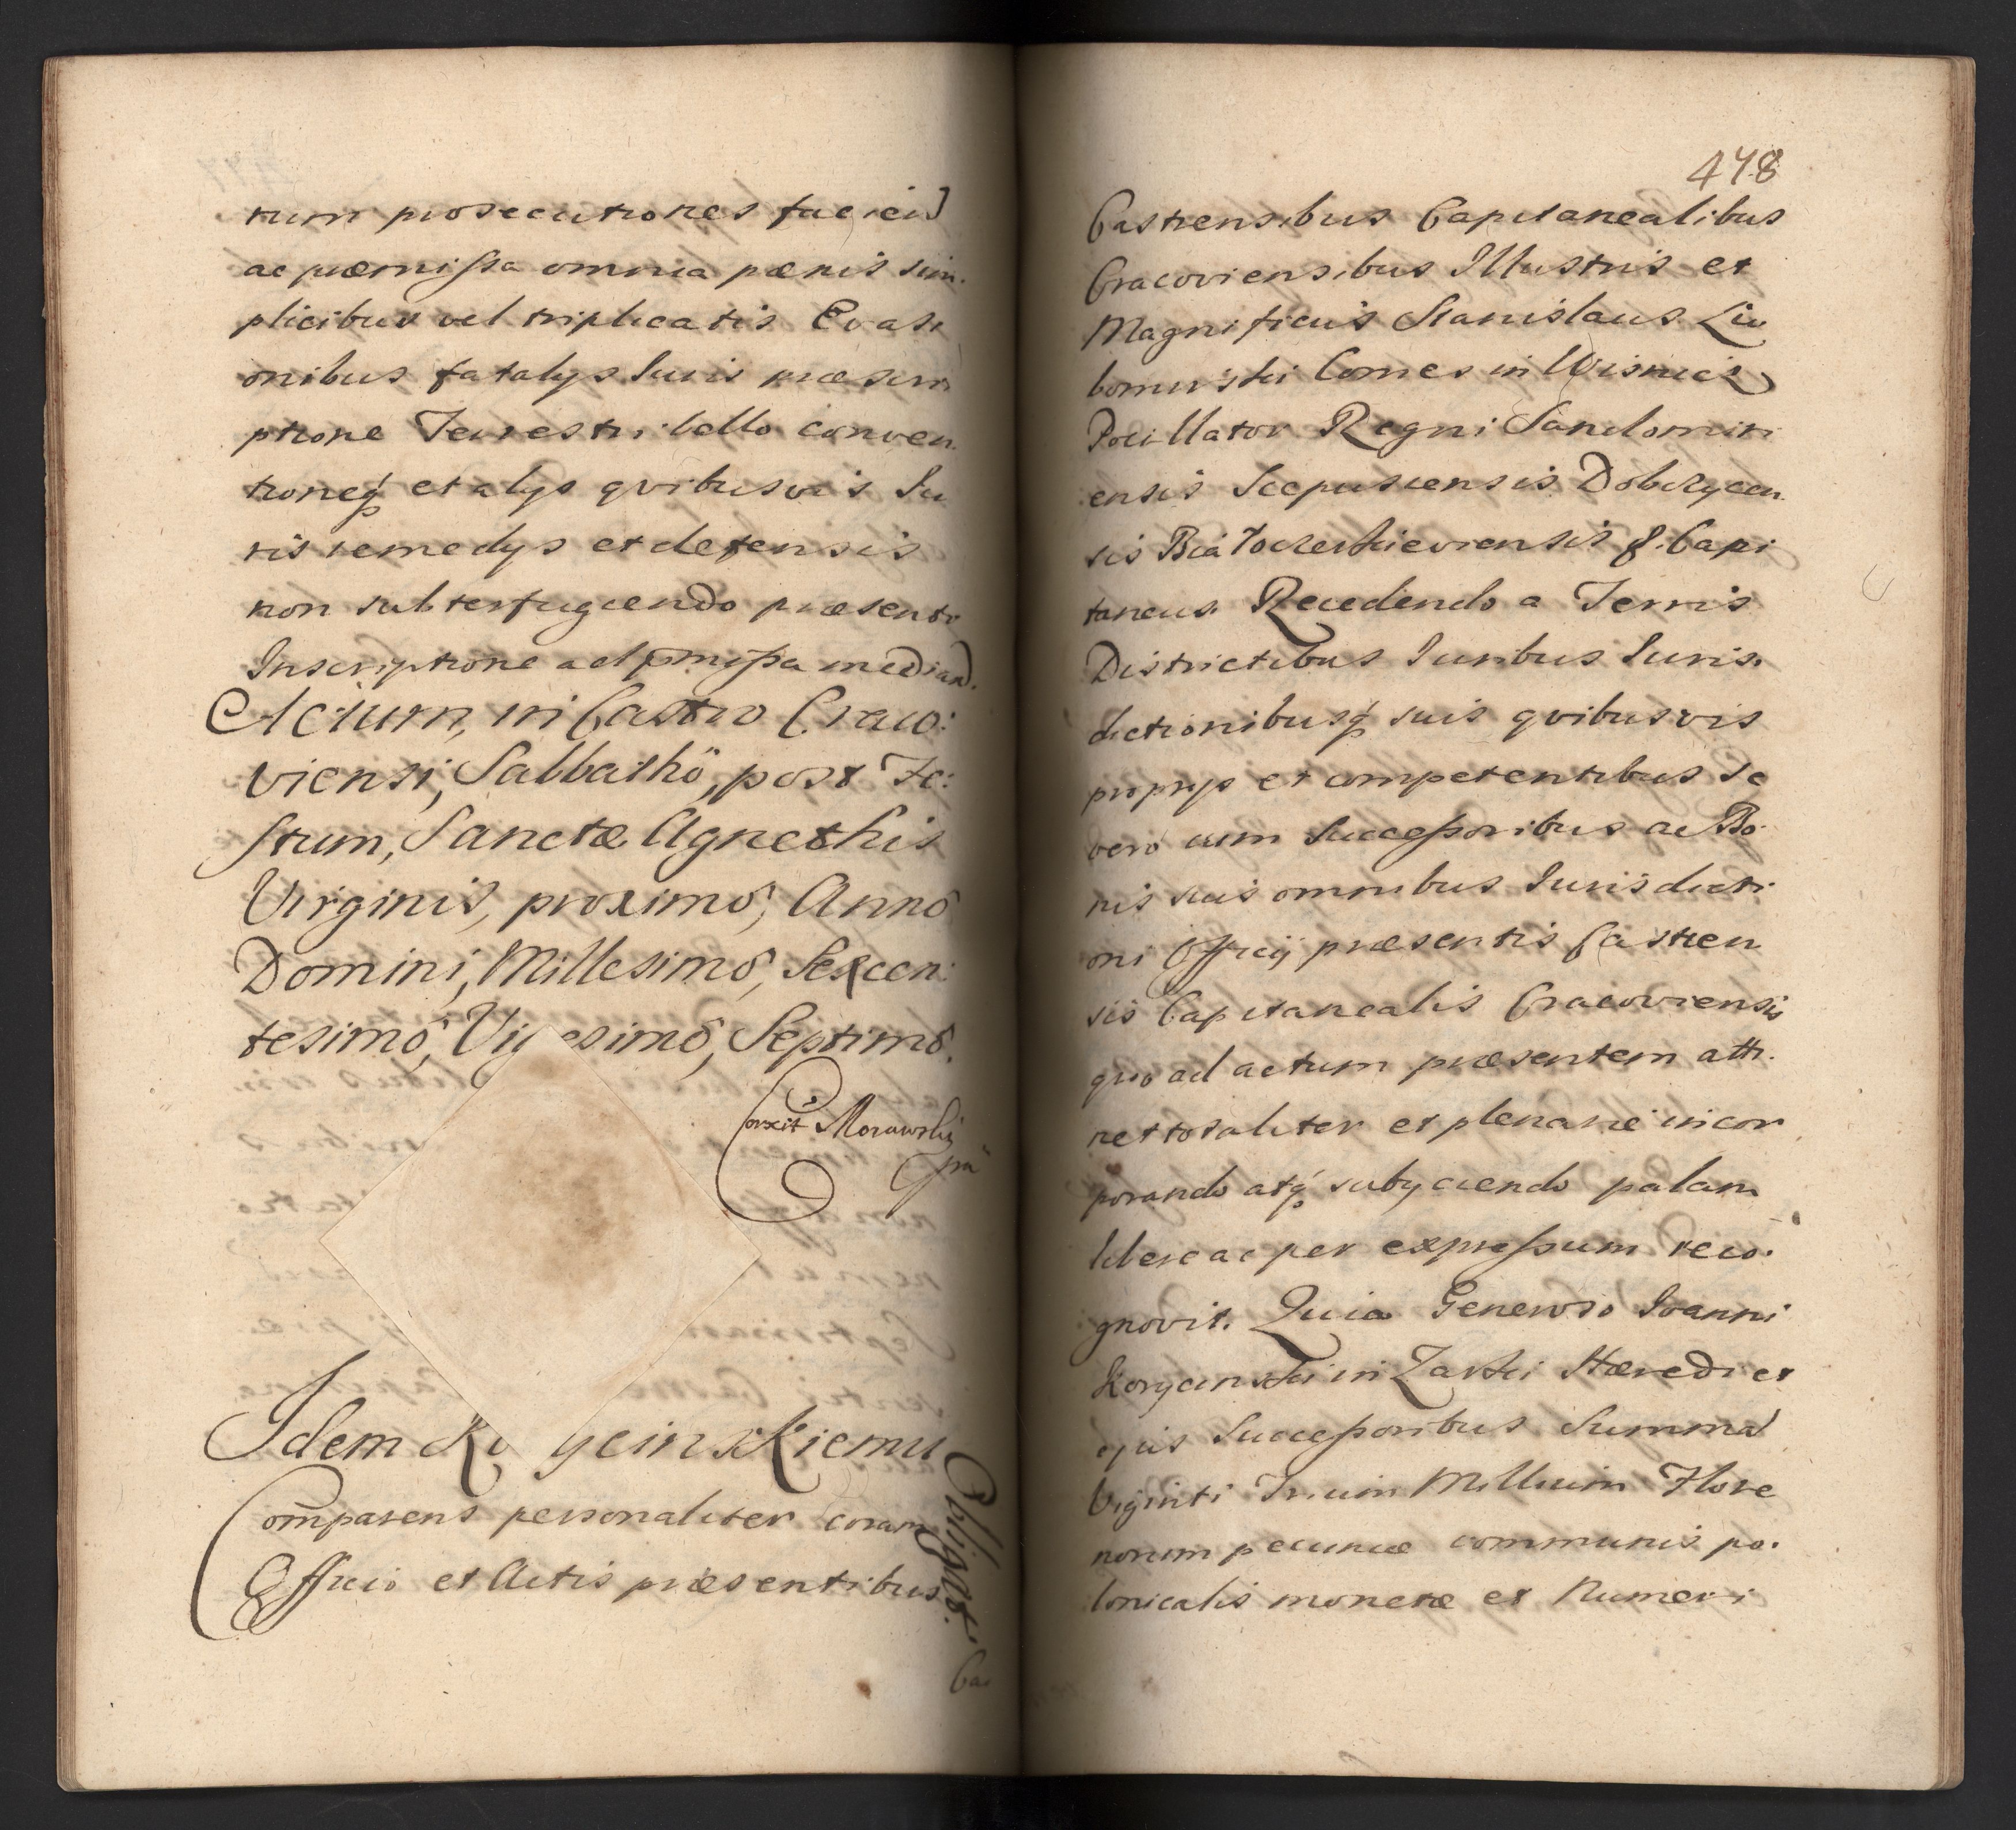 tum prosecutiones faciend
ac præmissa omnia pænis sim.
plicibus vel triplicatis Evasi
onibus fatalys Iuris præscri
ptione Terrestri bello conven
tioneq́ et alys qvibusvis Iu
ris remedys et defensis
non subterfugiendo præsenti
Inscriptione ad pmissa mediand.
Actum, in Castro Craco:
viensi, Sabbathô, post Fe:
stum, Sanctæ Agnethis
Virginis, proximô, Annô
Domini, Millesimô, Sexcen:
tesimô, Vigesimô, Septimô.
Corxit Morawsky
mp
Idem Ko ycinskiemu
Comparens personaliter coram
Officio et Actis præsentibus
Obligat.
Cas
478
Castrensibus Capitanealibus
Cracoviensibus Illustris et
Magnificus Stanislaus Lu
bomirski Comes in Wisnicz
Pocillator Regni Sandomiri
ensis Scepusiensis Dobczycen
sis Białocerkieviensis &. Capi
taneus Recedendo a Terris
Districtibus Iuribus Iuris.
dictionibusq́ suis qvibusvis
proprys et competentibus se
vero cum Successoribus ac Bo
nis suis omnibus Iurisdicti
oni Officij præsentis Castren
sis Capitanealis Cracoviensis
quo ad actum præsentem atti.
net totaliter et plenarie incor
porando atq́ subyciendo palam
libere ac per expressum reco.
gnovit. Quia Generoso Ioanni
Korycinski in Zarki Hæredi et
ejus Successoribus Summa
Viginti Trium Millium Flore
norum pecuniæ communis po.
lonicalis monetæ et Numeri